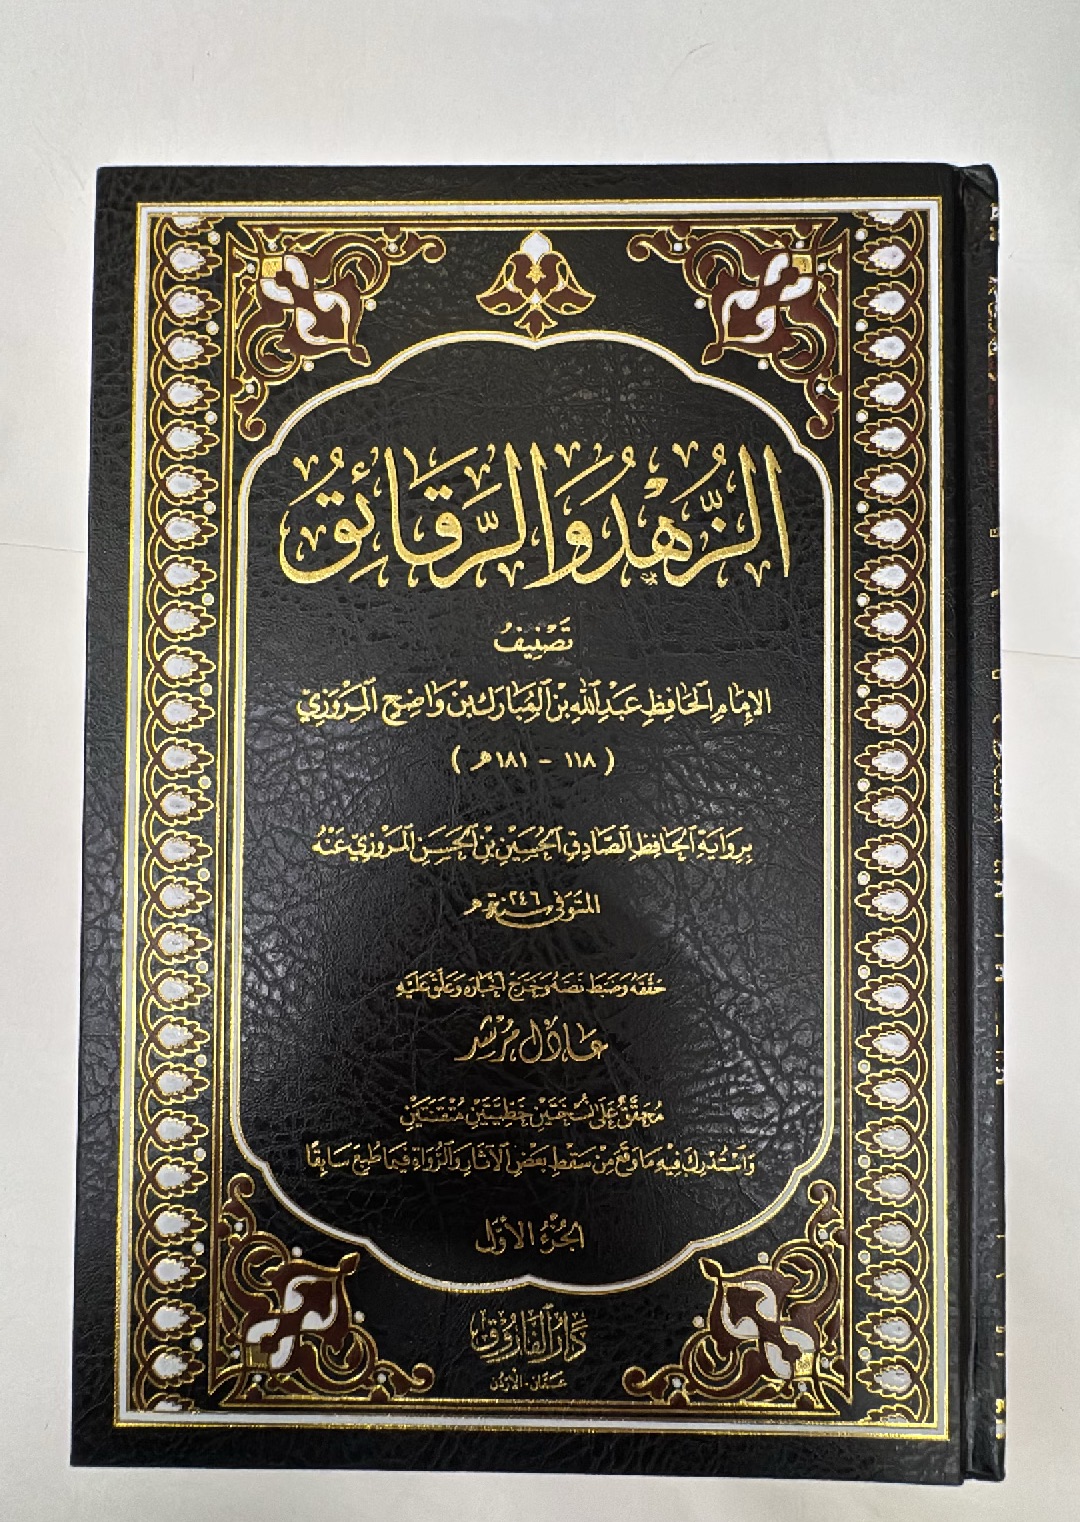 الزُّهْدُ وَالرَّقَائِقُ
تَصْنِيفُ
الإِمَامِ الْحَافِظِ عَبْدِ اللهِ بْنِ الْمُبَارَكِ بْنِ وَاضِحٍ الْمَرْوَزِيِّ
( ١١٨ - ١٨١ هـ )
بِرِوَايَةِ الْحَافِظِ الصَّادِقِ الْحُسَيْنِ بْنِ الْحَسَنِ الْمَرْوَزِيِّ عَنْهُ
المتوفى سنة ٢٤٦ هـ
حَقَّقَهُ وَضَبَطَ نَصَّهُ وَخَرَّجَ أَخْبَارَهُ وَعَلَّقَ عَلَيْهِ
عَادِل مُرْشِد
مُحَقَّقٌ عَلَى نُسْخَتَيْنِ خَطِّيَّتَيْنِ مُتْقَنَتَيْنِ
وَاسْتُدْرِكَ فِيهِ مَا وَقَعَ مِنْ سَقْطِ بَعْضِ الْآثَارِ وَالرُّوَاةِ فِيمَا طُبِعَ سَابِقًا
الجُزْءُ الأَوَّل
دَارُ الْفَارُوقِ
عَمَّان - الأُرْدُن